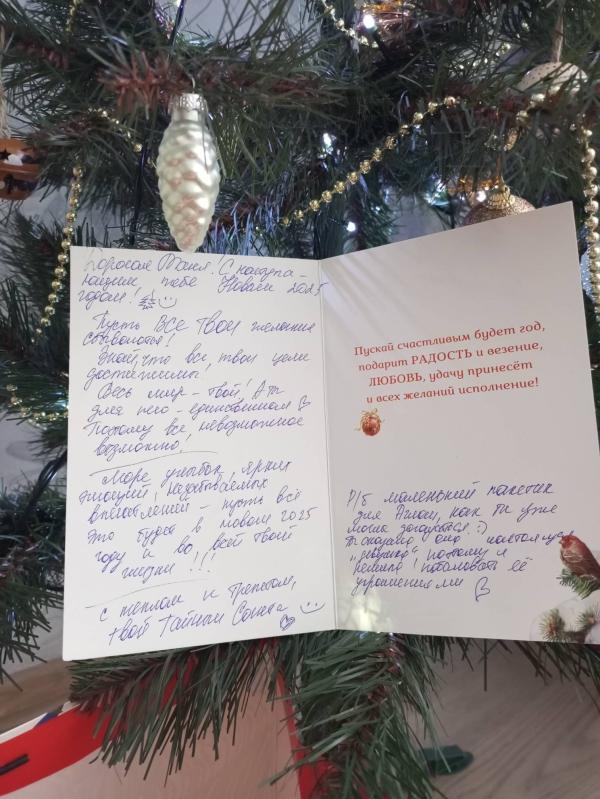 Дорогая Таня! С наступа-
ющим тебя Новым 2025
годом!
Пусть ВСЕ Твои желания
сбываются!
Знай, что все твои цели
достижимы!
Весь мир - твой! А ты
для него - единственная
Поэтому все невозможное
возможно!
Море улыбок, ярких
эмоций, незабываемых
впечатлений - пусть всё
это будет в новом 2025
году и во всей твоей
жизни!!!
с теплом и трепетом,
твой Тайный Санта
Пускай счастливым будет год,
подарит РАДОСТЬ и везение,
ЛЮБОВЬ, удачу принесёт
и всех желаний исполнение!
P/S маленький пакетик
для как ты уже
могла догадаться :)
Ты сказала она настоящая
"девушка" поэтому я
решила побаловать её
украшениями